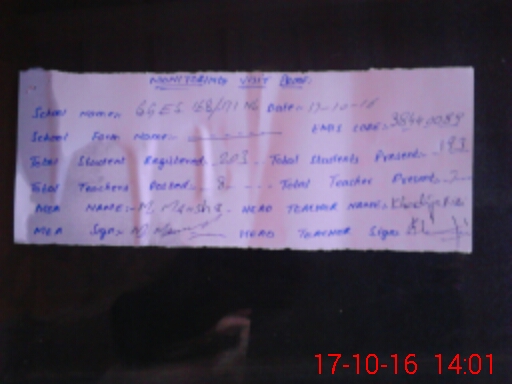 MONITORING VISIT PROF.
School Name:- GGES 158/171 NB Date:- 17-10-16
School Form Name:- EMIS CODE:- 38440089
Total Student Registered:- 203 Total Students Present:- 193
Total Teachers Posted:- 8 Total Teacher Present:-
MEA NAME:- M. Mansha HEAD TEACHER NAME:- Khadija
MEA Sign:- HEAD TEACHER Sign:
17-10-16 14:01